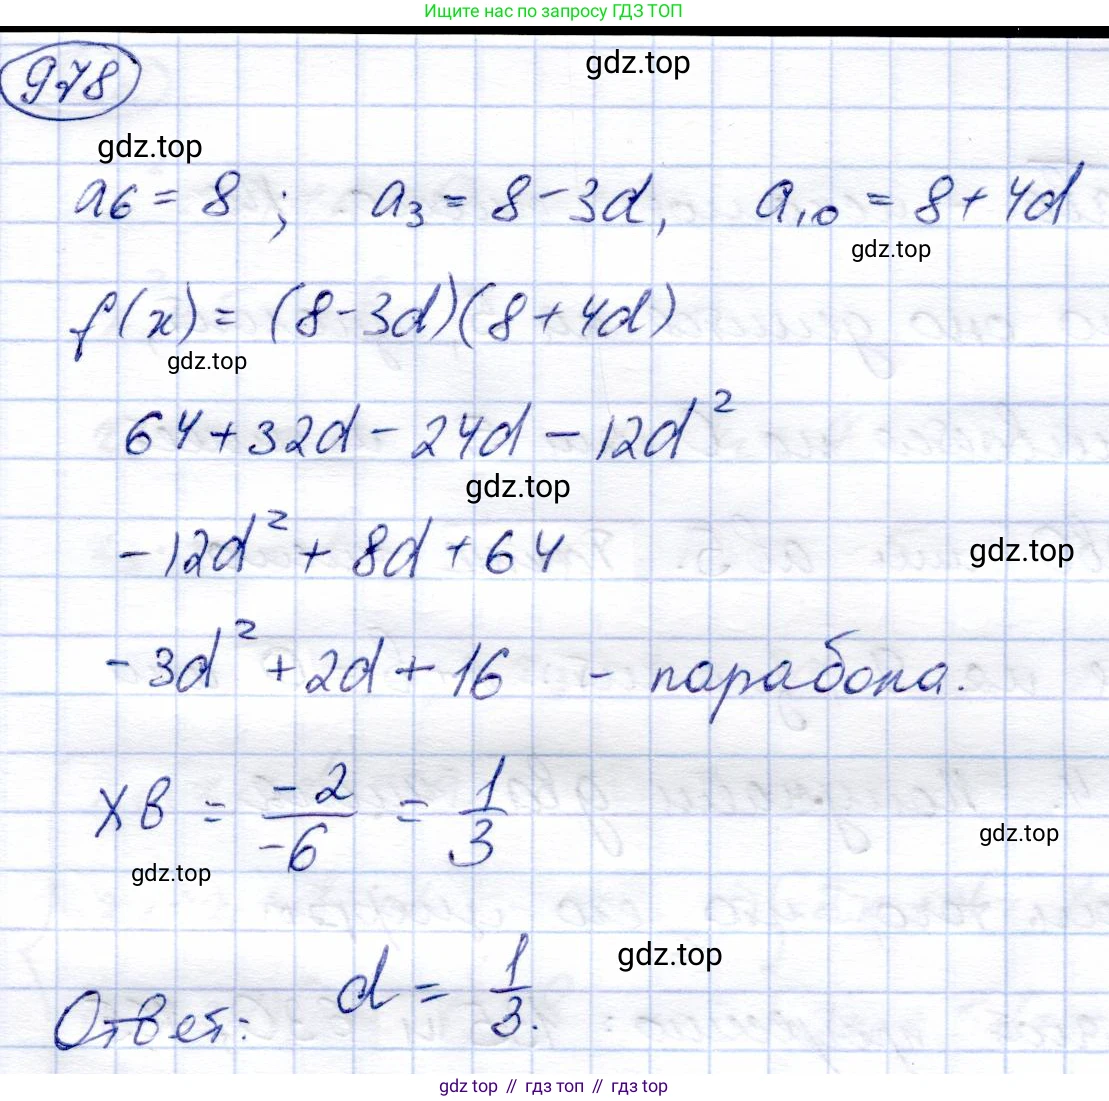 Ищите нас по запросу ГДЗ ТОП
978
gdz.top
gdz.top
a₆ = 8 ; a₃ = 8 - 3d, a₁₀ = 8 + 4d
gdz.top
f(x) = (8 - 3d)(8 + 4d)
gdz.top
64 + 32d - 24d - 12d²
gdz.top
-12d² + 8d + 64
gdz.top
-3d² + 2d + 16 - парабола.
xв = -2/-6 = 1/3
gdz.top
gdz.top
gdz.top
Ответ: d = 1/3.
gdz top // гдз топ // гдз top